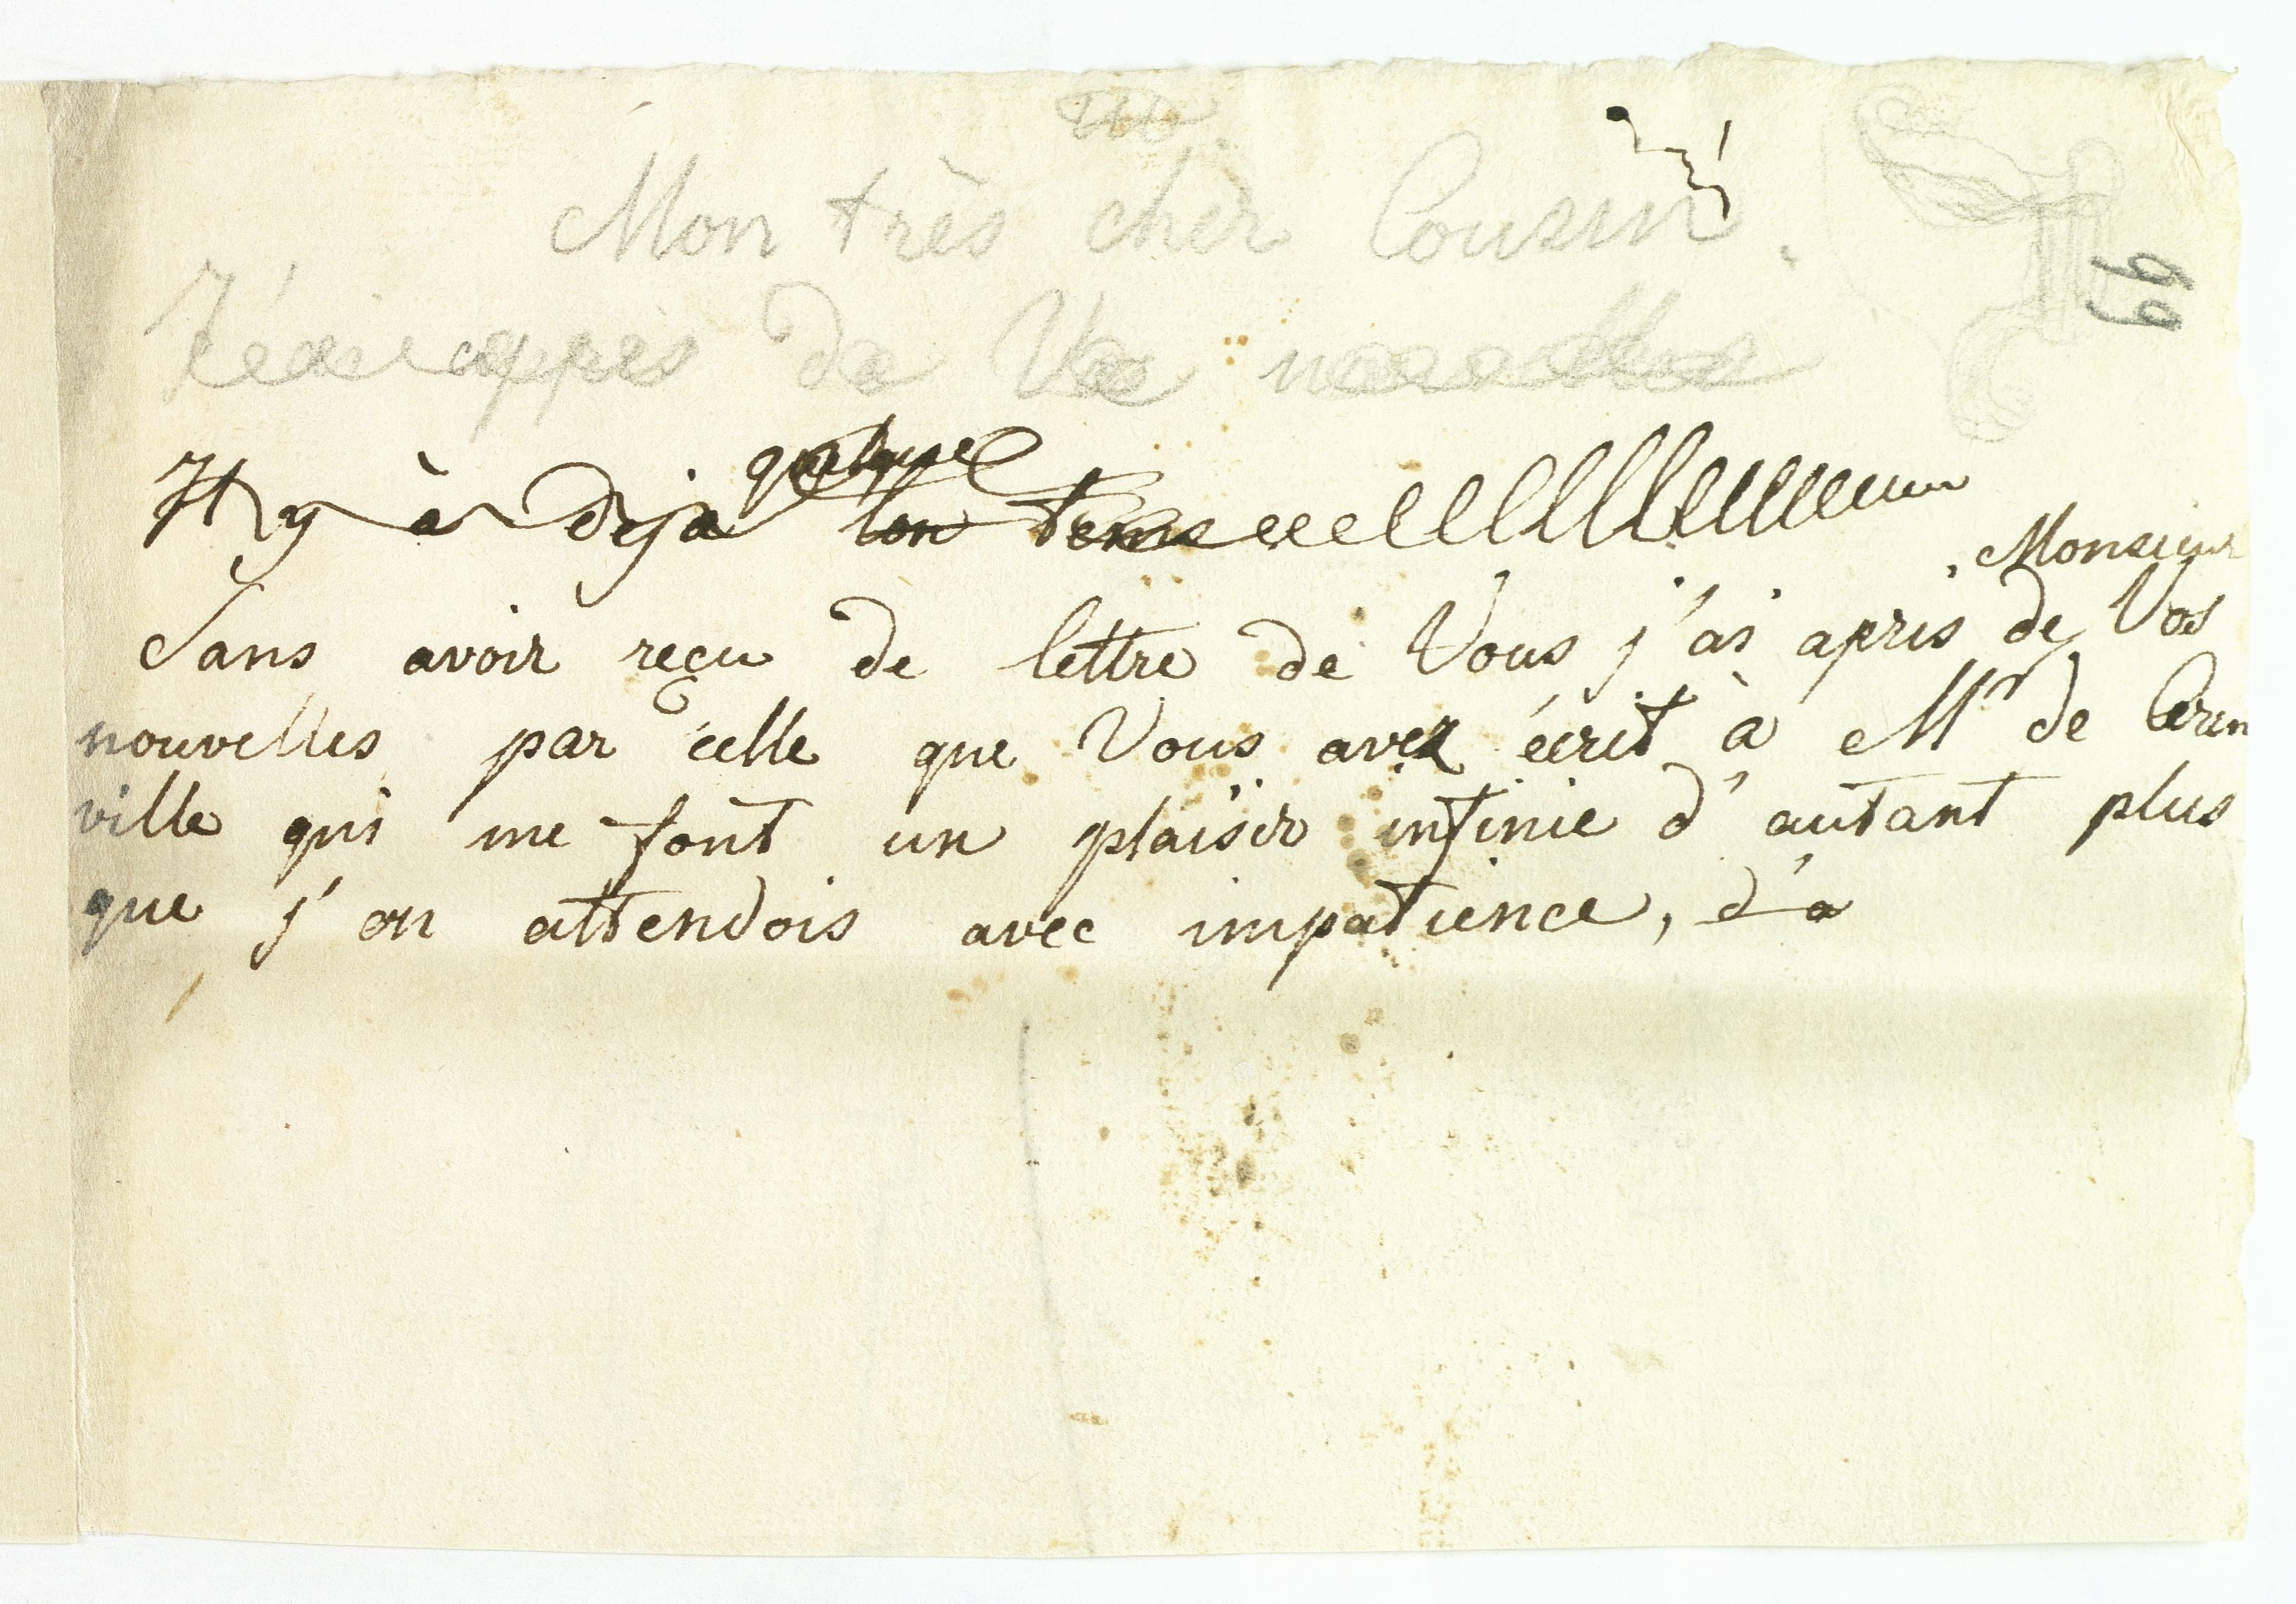 Mon très cher Cousin.
99
de Vos nouvelles
quelque
Il y à deja lon tems
Monsieur
Sans avoir reçu de lettre de Vous j'ai apris de Vos
nouvelles par celle que Vous avez écrit à Mr de Ceren
ville qui me font un plaisir infinie d'autant plus
que j'on attendois avec impatience, d'a